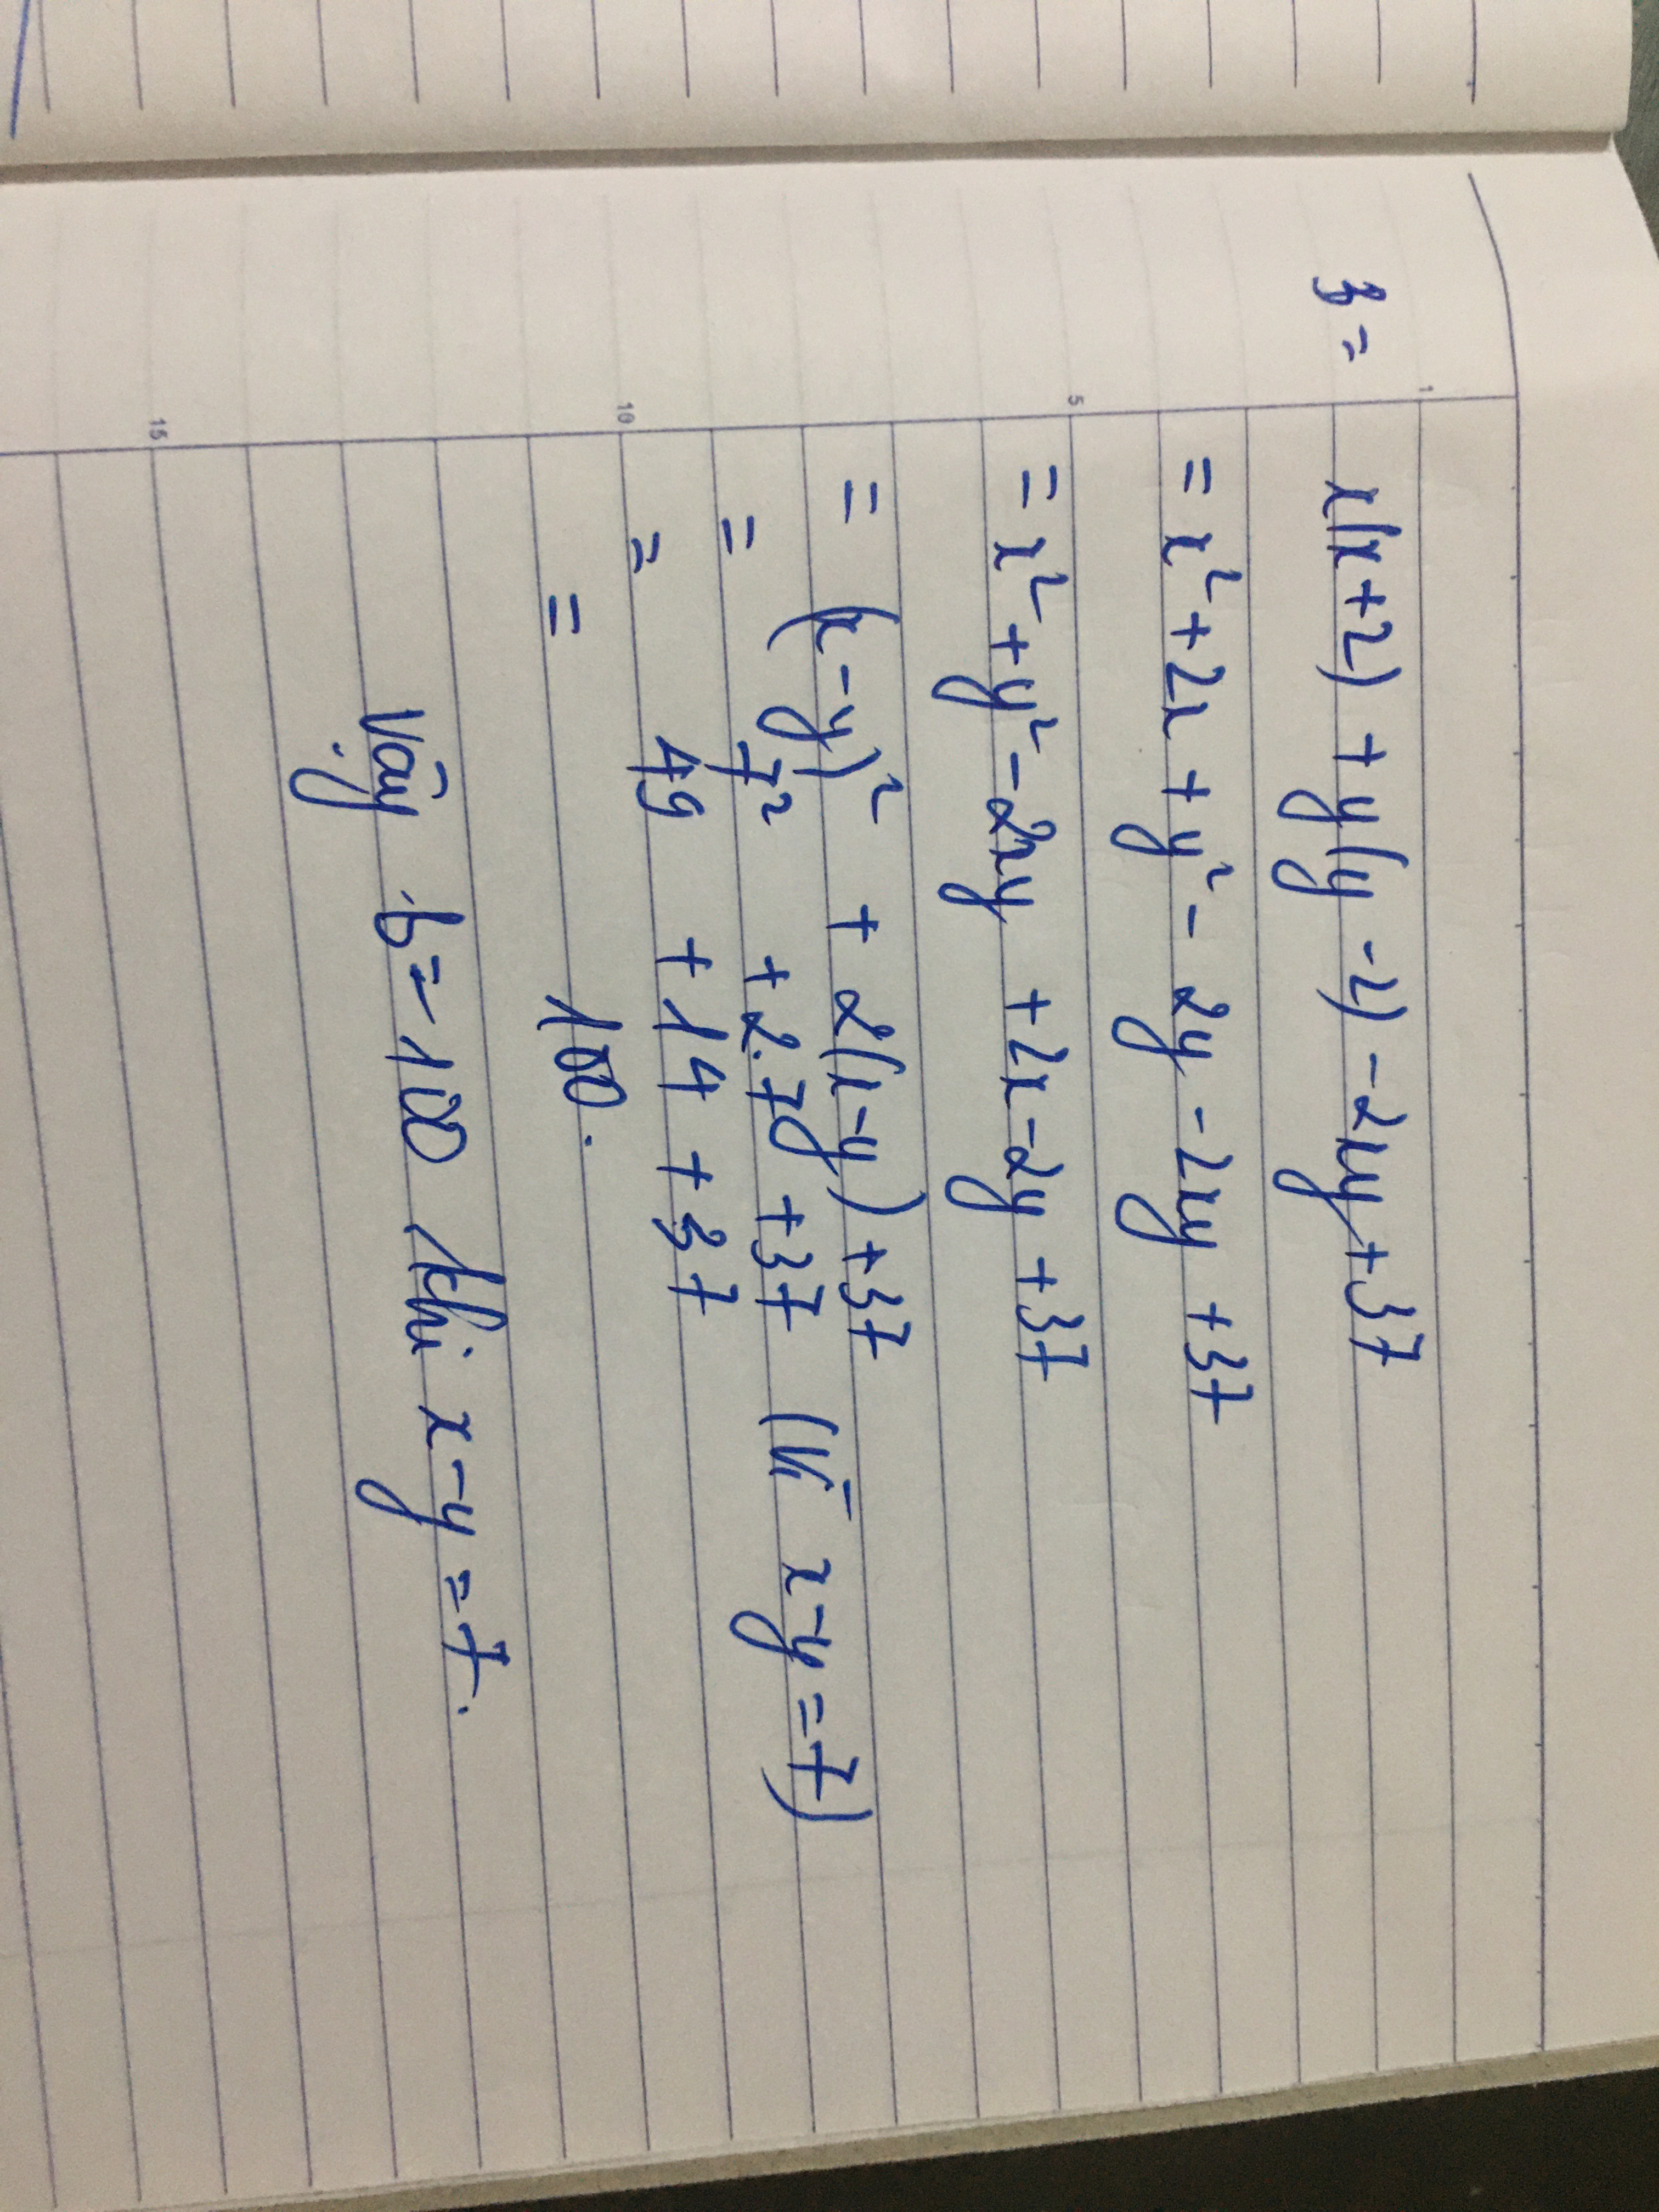 B = x(x+2) + y(y-2) - 2xy + 37
= x² + 2x + y² - 2y - 2xy + 37
= x² + y² - 2xy + 2x - 2y + 37
= (x-y)² + 2(x-y) + 37
= 7² + 2.7 + 37 (vì x-y = 7)
= 49 + 14 + 37
= 100.
Vậy b = 100 khi x-y = 7.
1
5
10
15